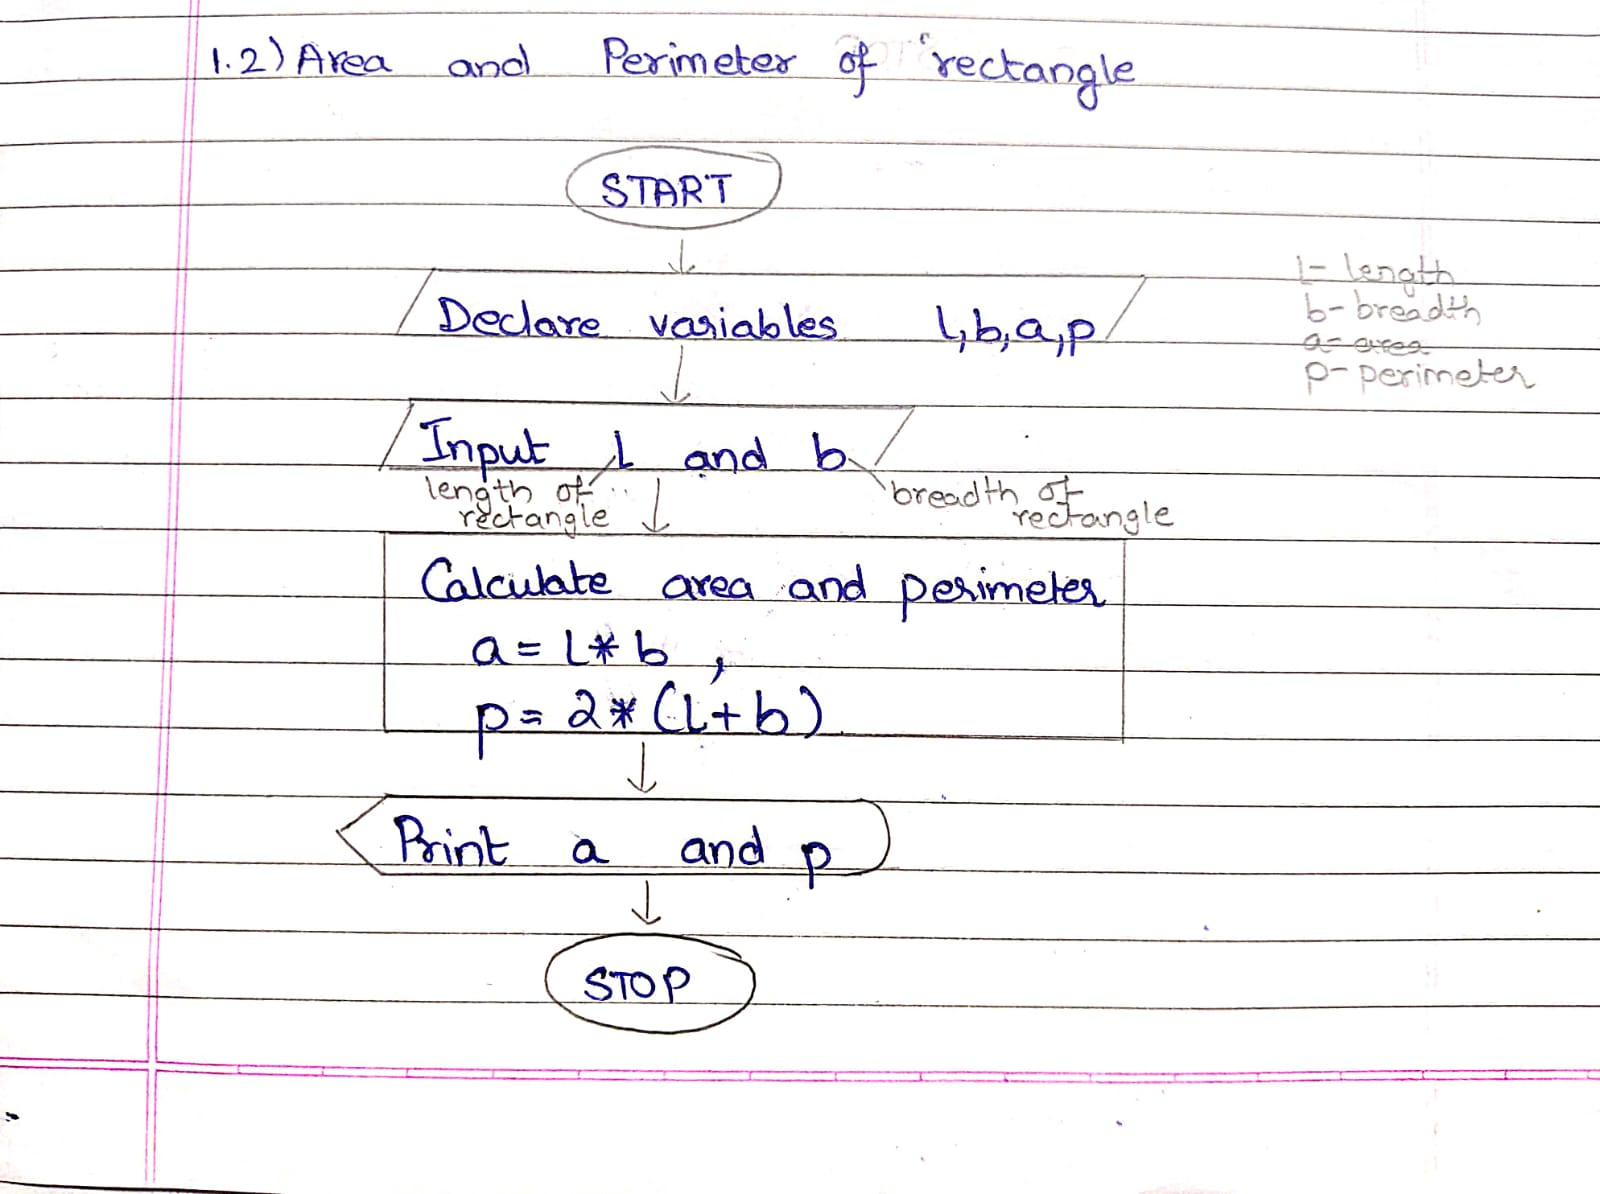 1.2) Area and Perimeter of rectangle
START
Declare variables l, b, a, p
l- length
b- breadth
a- area
p- perimeter
Input l and b
length of
rectangle
breadth of
rectangle
Calculate area and perimeter
a = l * b ,
p = 2 * (l + b)
Print a and p
STOP